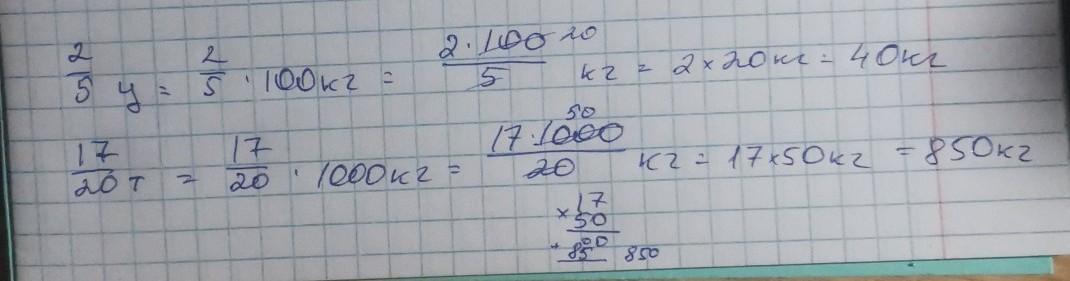 2/5 ц = 2/5 · 100кг = 2·100/5 20 кг = 2×20кг = 40кг
17/20 т = 17/20 · 1000кг = 17·1000/20 50 кг = 17×50кг = 850кг
×17
50
+ 00
85 850